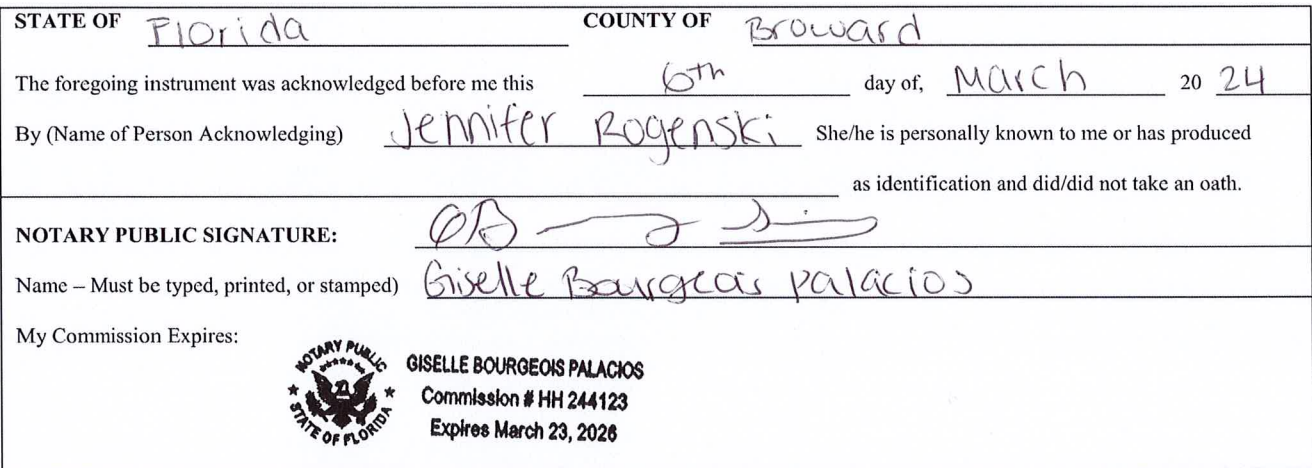 STATE OF Florida COUNTY OF Broward
The foregoing instrument was acknowledged before me this 6th day of, March 20 24
By (Name of Person Acknowledging) Jennifer Rogenski She/he is personally known to me or has produced
as identification and did/did not take an oath.
NOTARY PUBLIC SIGNATURE:
Name – Must be typed, printed, or stamped) Giselle Bourgeois Palacios
My Commission Expires:
NOTARY PUBLIC
STATE OF FLORIDA
GISELLE BOURGEOIS PALACIOS
Commission # HH 244123
Expires March 23, 2026